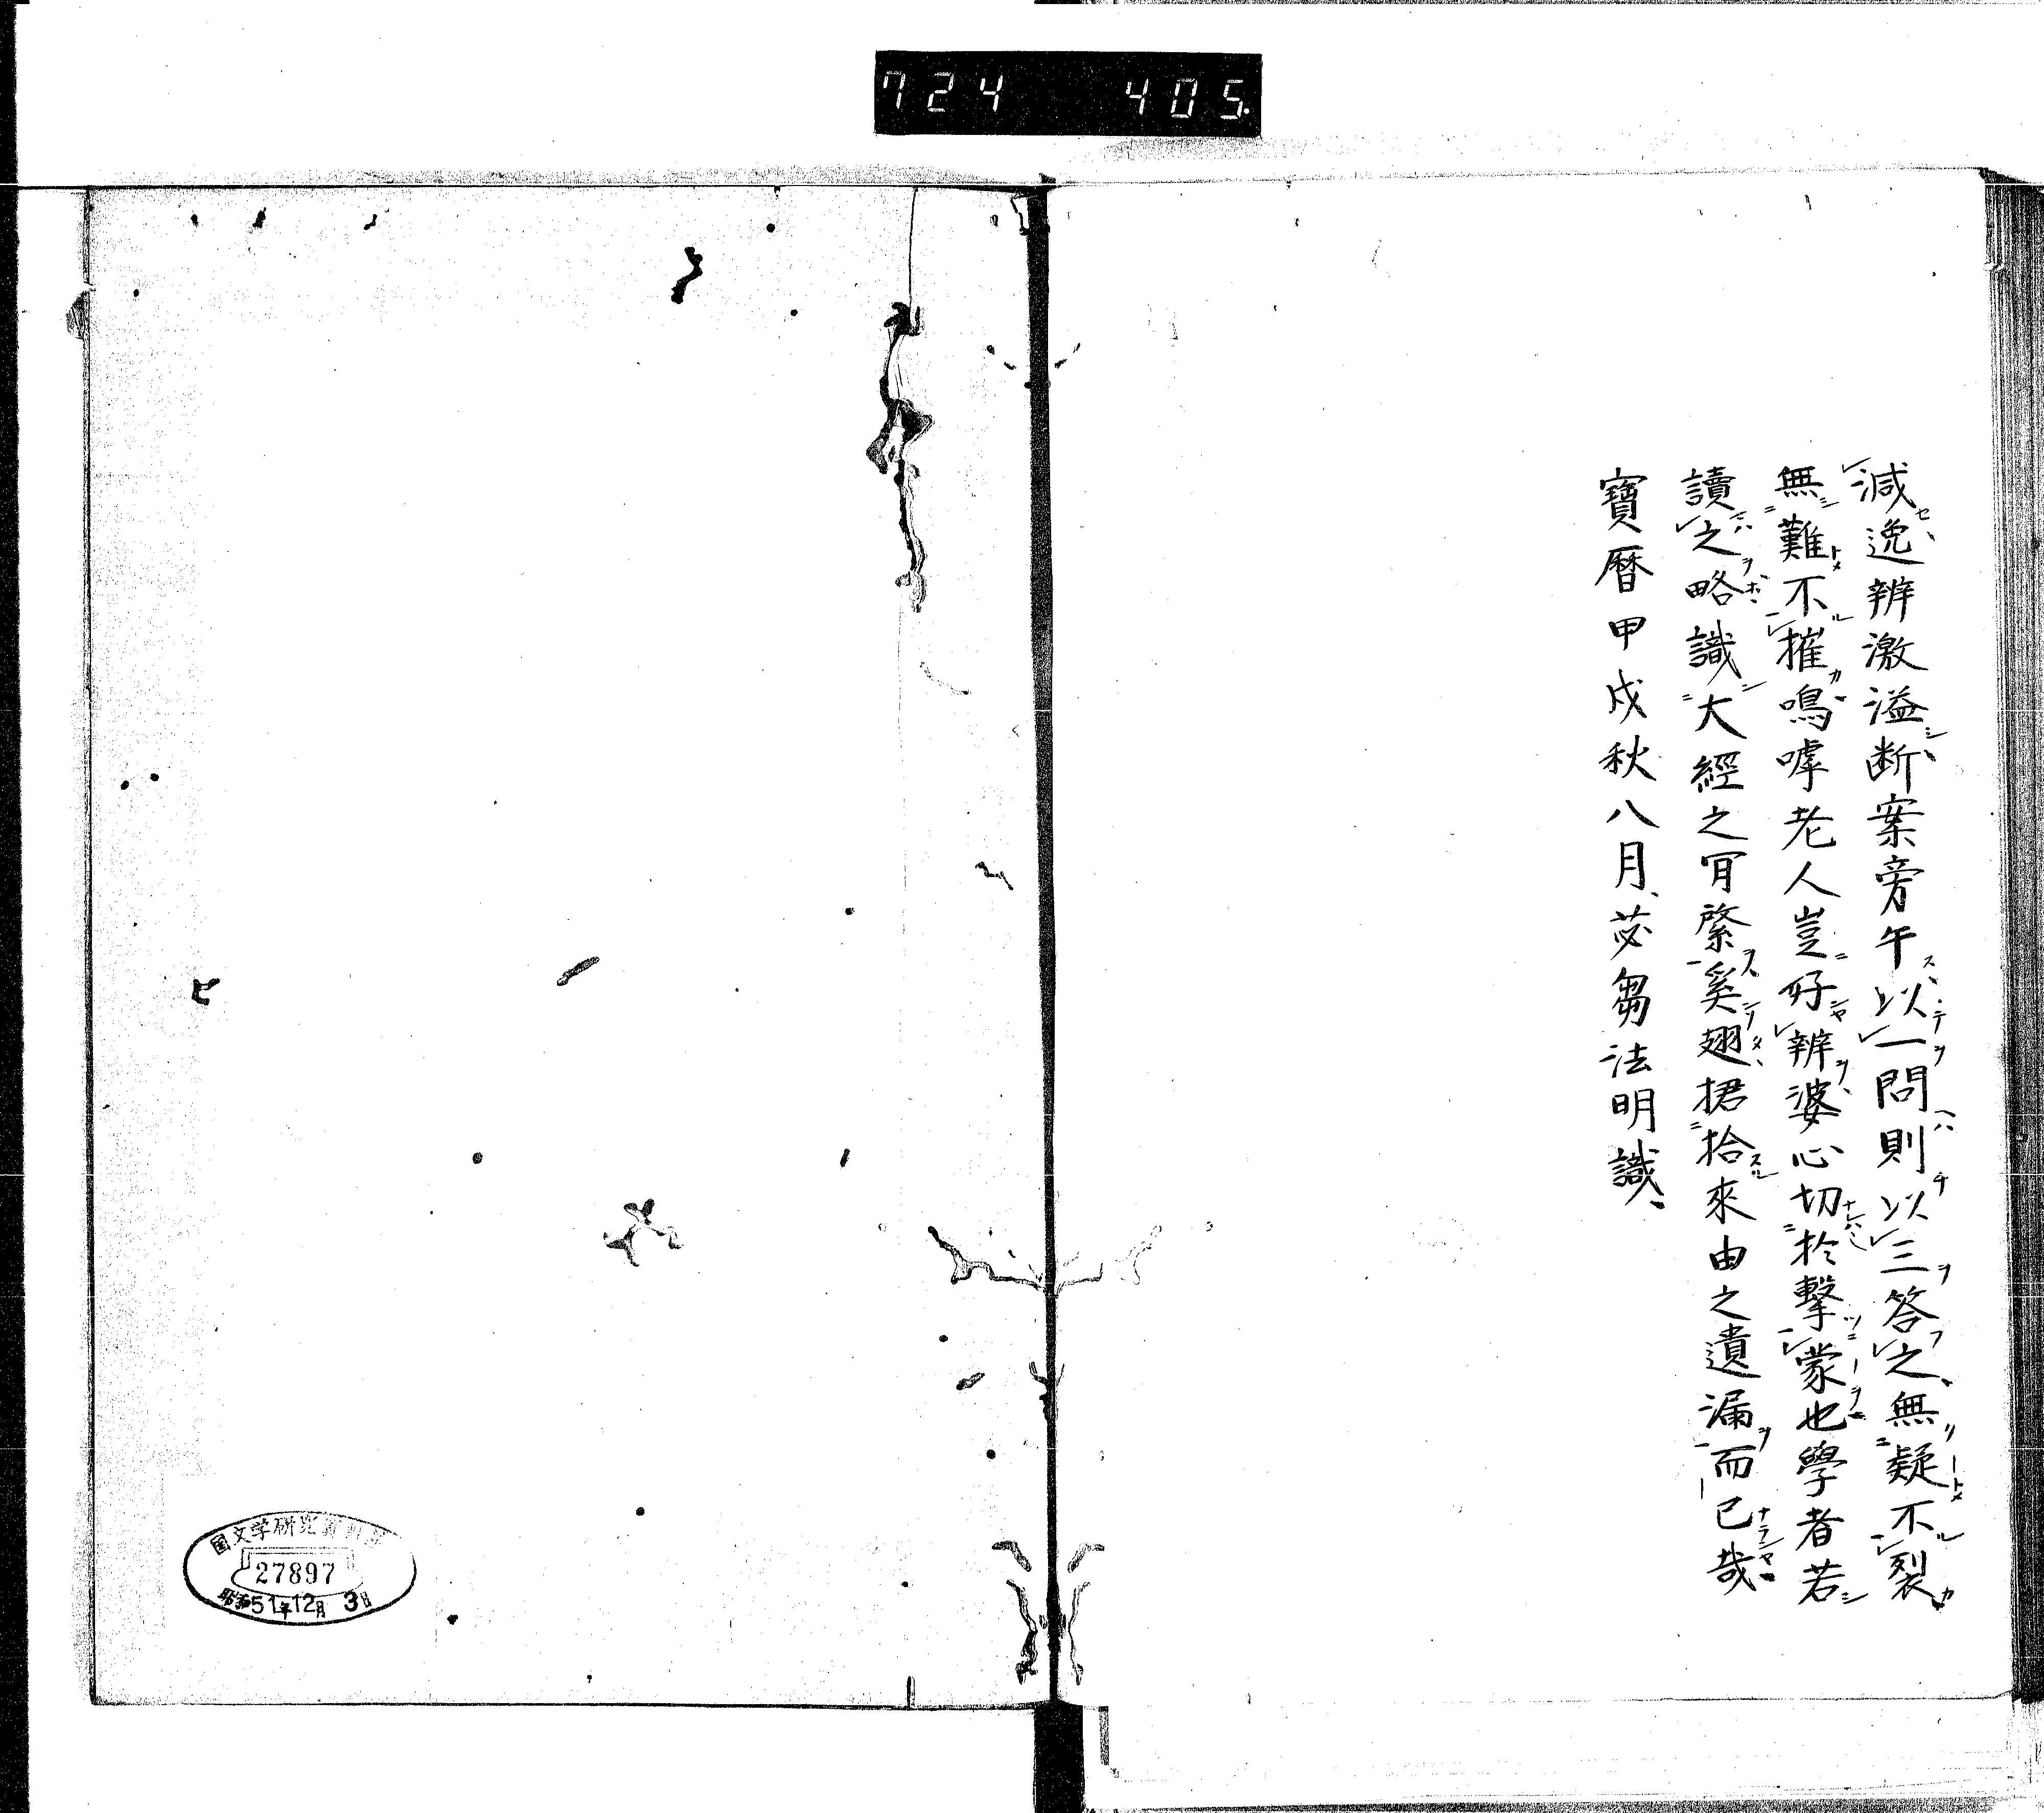 724 405
減逸辨激溢断案旁午以一問則以三答之無疑不裂
無難不摧鳴嘑老人豈好辨婆心切於擊蒙也學者若
讀之略識大經之肎綮奚翅捃拾來由之遺漏而已哉
寶暦甲戌秋八月苾芻法明識
国文学研究資料館
27897
昭和51年12月3日